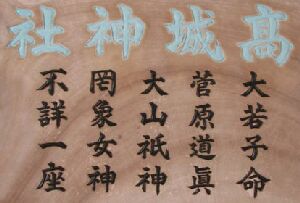 髙城神社
大若子命
菅原道眞
大山祇神
罔象女神
不詳一座